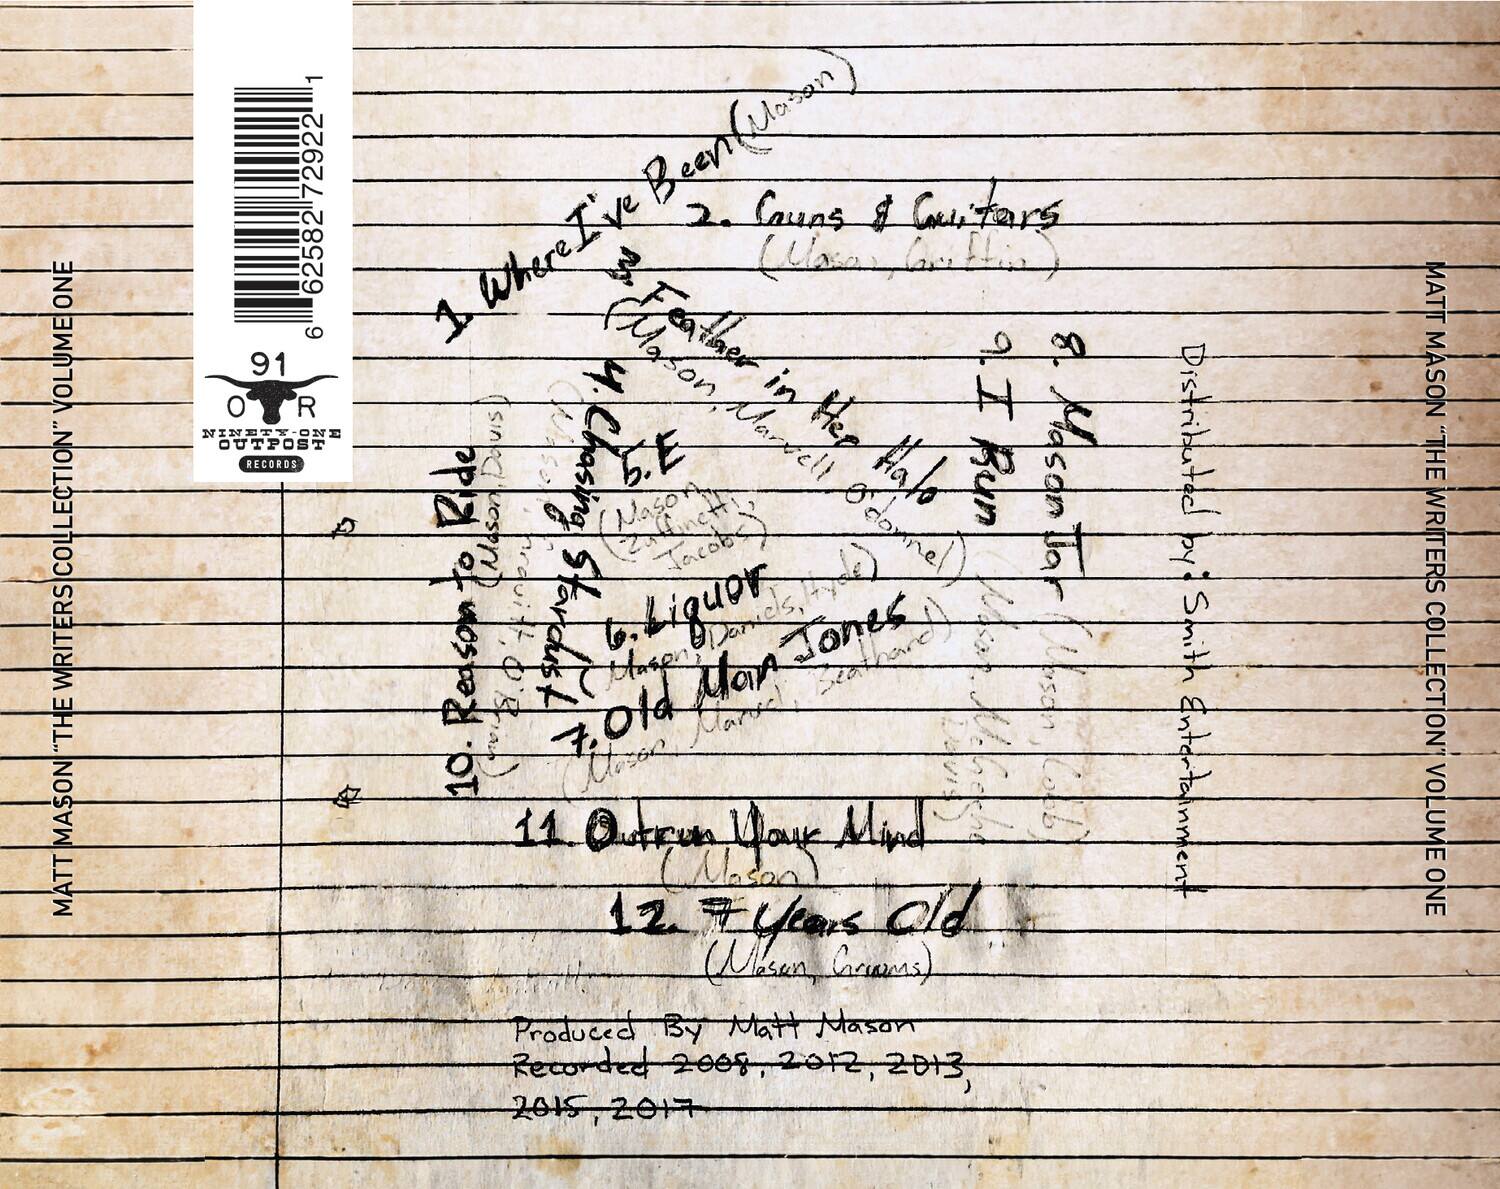 MATT MASON "THE WRITERS COLLECTION" VOLUME ONE
6 62582 72922 1
91
O R
NINETY-ONE
OUTPOST
RECORDS
1. Where I've Been (Mason)
2. Guns & Guitars
(Mason, Griffin)
3. Feather in Her Halo
(Mason, Marvell O'donnel)
4. Chasing Stardust
(Mason, O'Brian)
5. E
(Mason,
Jacobs)
6. Liquor
Mason, Daniels, Hyde)
7. Old Man Jones
(Mason, Marvel, Beathard)
8. Mason Jar
(Mason, Cobb)
9. I Run
(Mason,
Davis)
10. Reason to Ride
(Mason, Davis)
11. Outrun Your Mind
(Mason)
12. 7 Years Old
(Mason, Grooms)
Produced By Matt Mason
Recorded 2008, 2012, 2013,
2015, 2017
Distributed by: Smith Entertainment
MATT MASON "THE WRITERS COLLECTION" VOLUME ONE